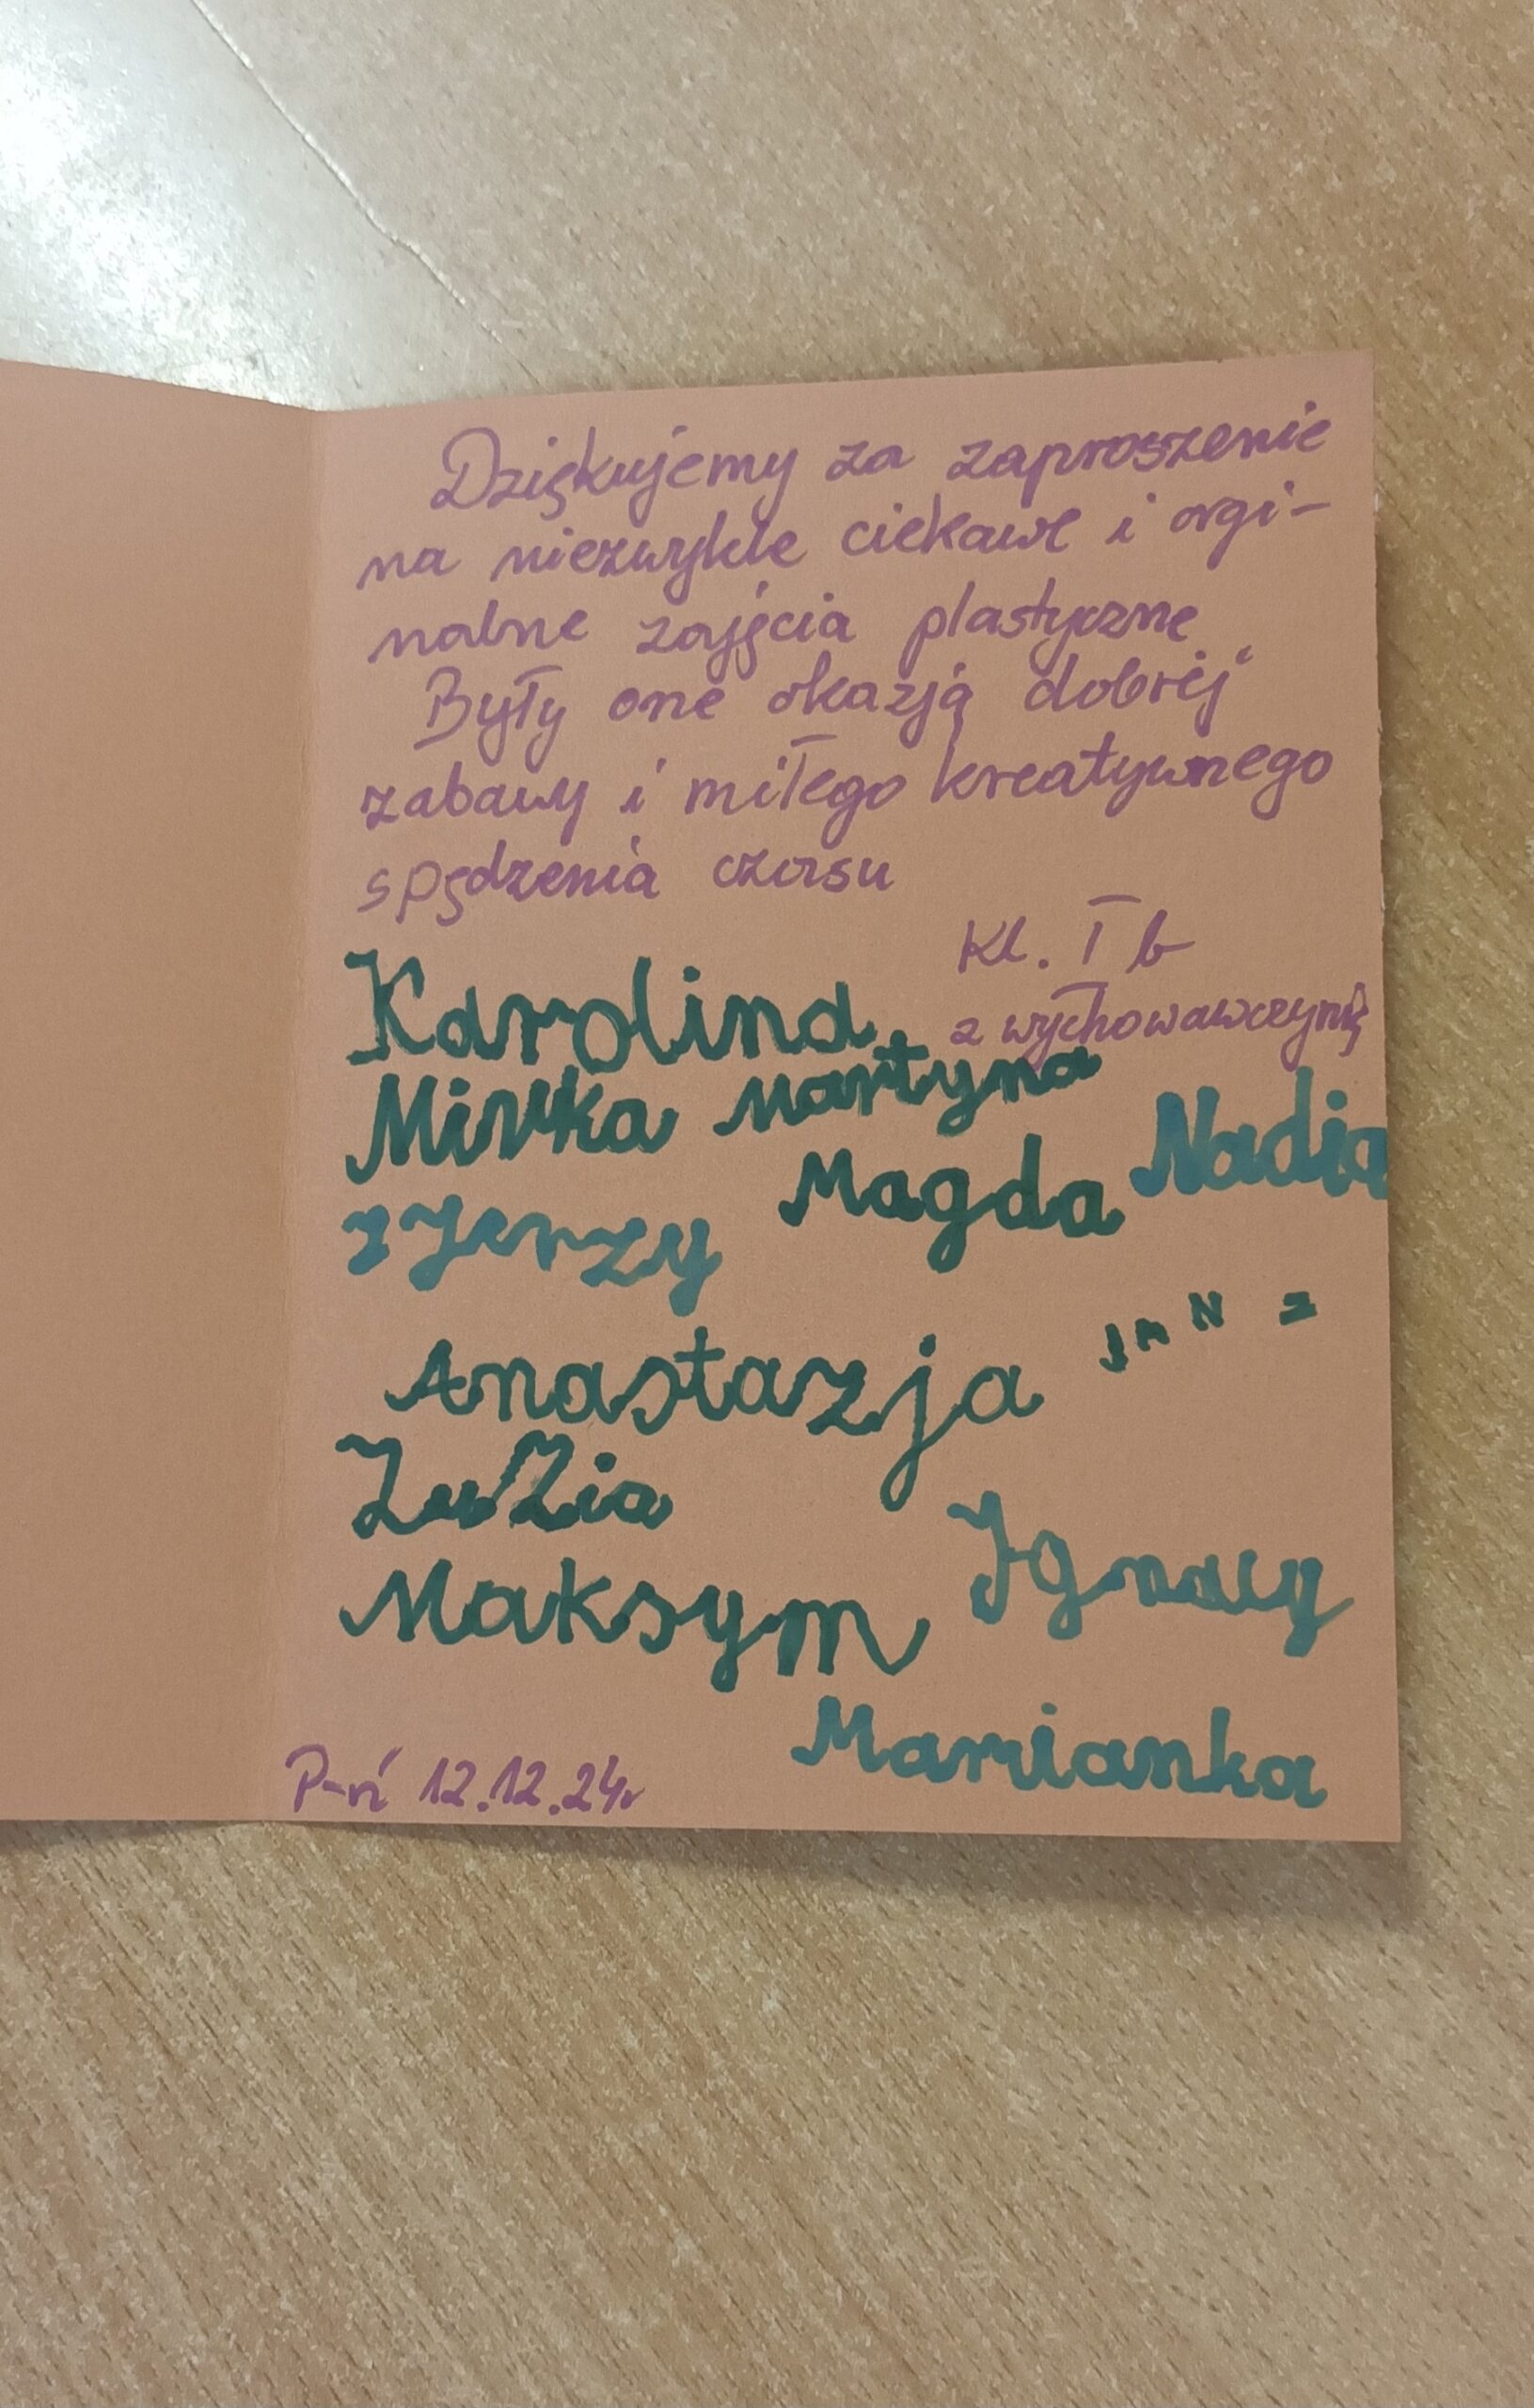 Dziękujemy za zaproszenie
na niezwykle ciekawe i orgi-
nalne zajęcia plastyczne
Były one okazją dobrej
zabawy i miłego kreatywnego
spędzenia czasu
Kl. I b
z wychowawczynią
Karolina
Mirka Martyna
Nadia
Jerzy Magda
Anastazja
Zuzia
Ignacy
Maksym
Marianka
P-ń 12.12.24r